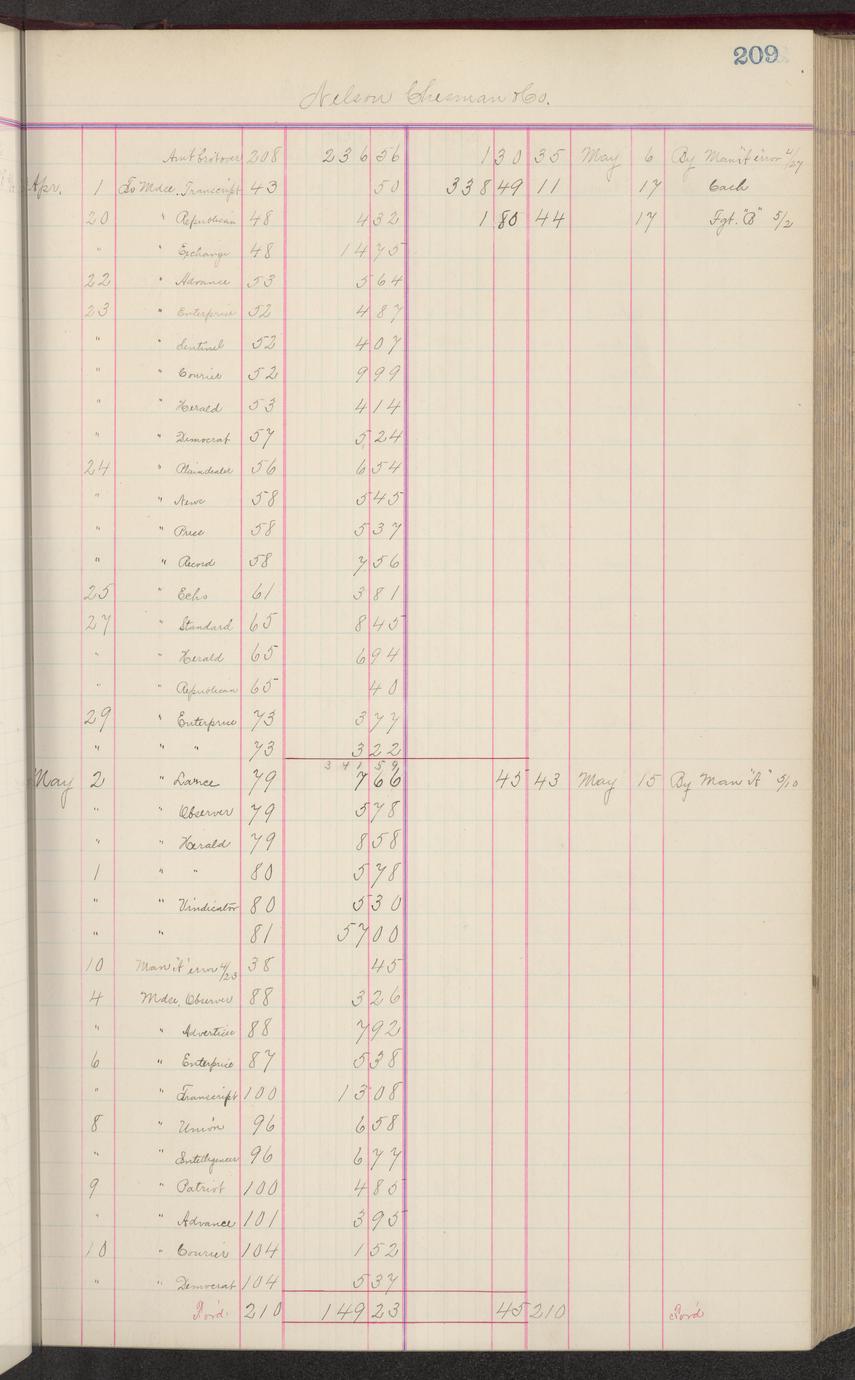 209
Nelson Chesman & Co.
Amt brot over 208 236 56 1 30 35 May 6 By Man "A" error 4/27
Apr. 1 To Mdse. Transcript 43 50 338 49 11 17 Cash
20 " Republican 48 4 32 1 80 44 17 Fgt. "B" 5/2
" " Exchange 48 14 75
22 " Advance 53 5 64
23 " Enterprise 52 4 87
" " Sentinel 52 4 07
" " Courier 52 9 99
" " Herald 53 4 14
" " Democrat 57 5 24
24 " Plaindealer 56 6 54
" " News 58 5 45
" " Press 58 5 37
" " Record 58 7 56
25 " Echo 61 3 81
27 " Standard 65 8 45
" " Herald 65 6 94
" " Republican 65 40
29 " Enterprise 73 3 77
" " " 73 3 22
341 59
May 2 " Lance 79 7 66 45 43 May 15 By Man "A" 5/10
" " Observer 79 5 78
" " Herald 79 8 58
1 " " 80 5 78
" " Vindicator 80 5 30
" " 81 57 00
10 Man "A" error 4/23 38 45
4 Mdse. Observer 88 3 26
" " Advertiser 88 7 92
6 " Enterprise 87 5 38
" " Transcript 100 13 08
8 " Union 96 6 58
" " Intelligencer 96 6 77
9 " Patriot 100 4 85
" " Advance 101 3 95
10 " Courier 104 1 52
" " Democrat 104 5 37
For'd 210 149 23 45 210 For'd